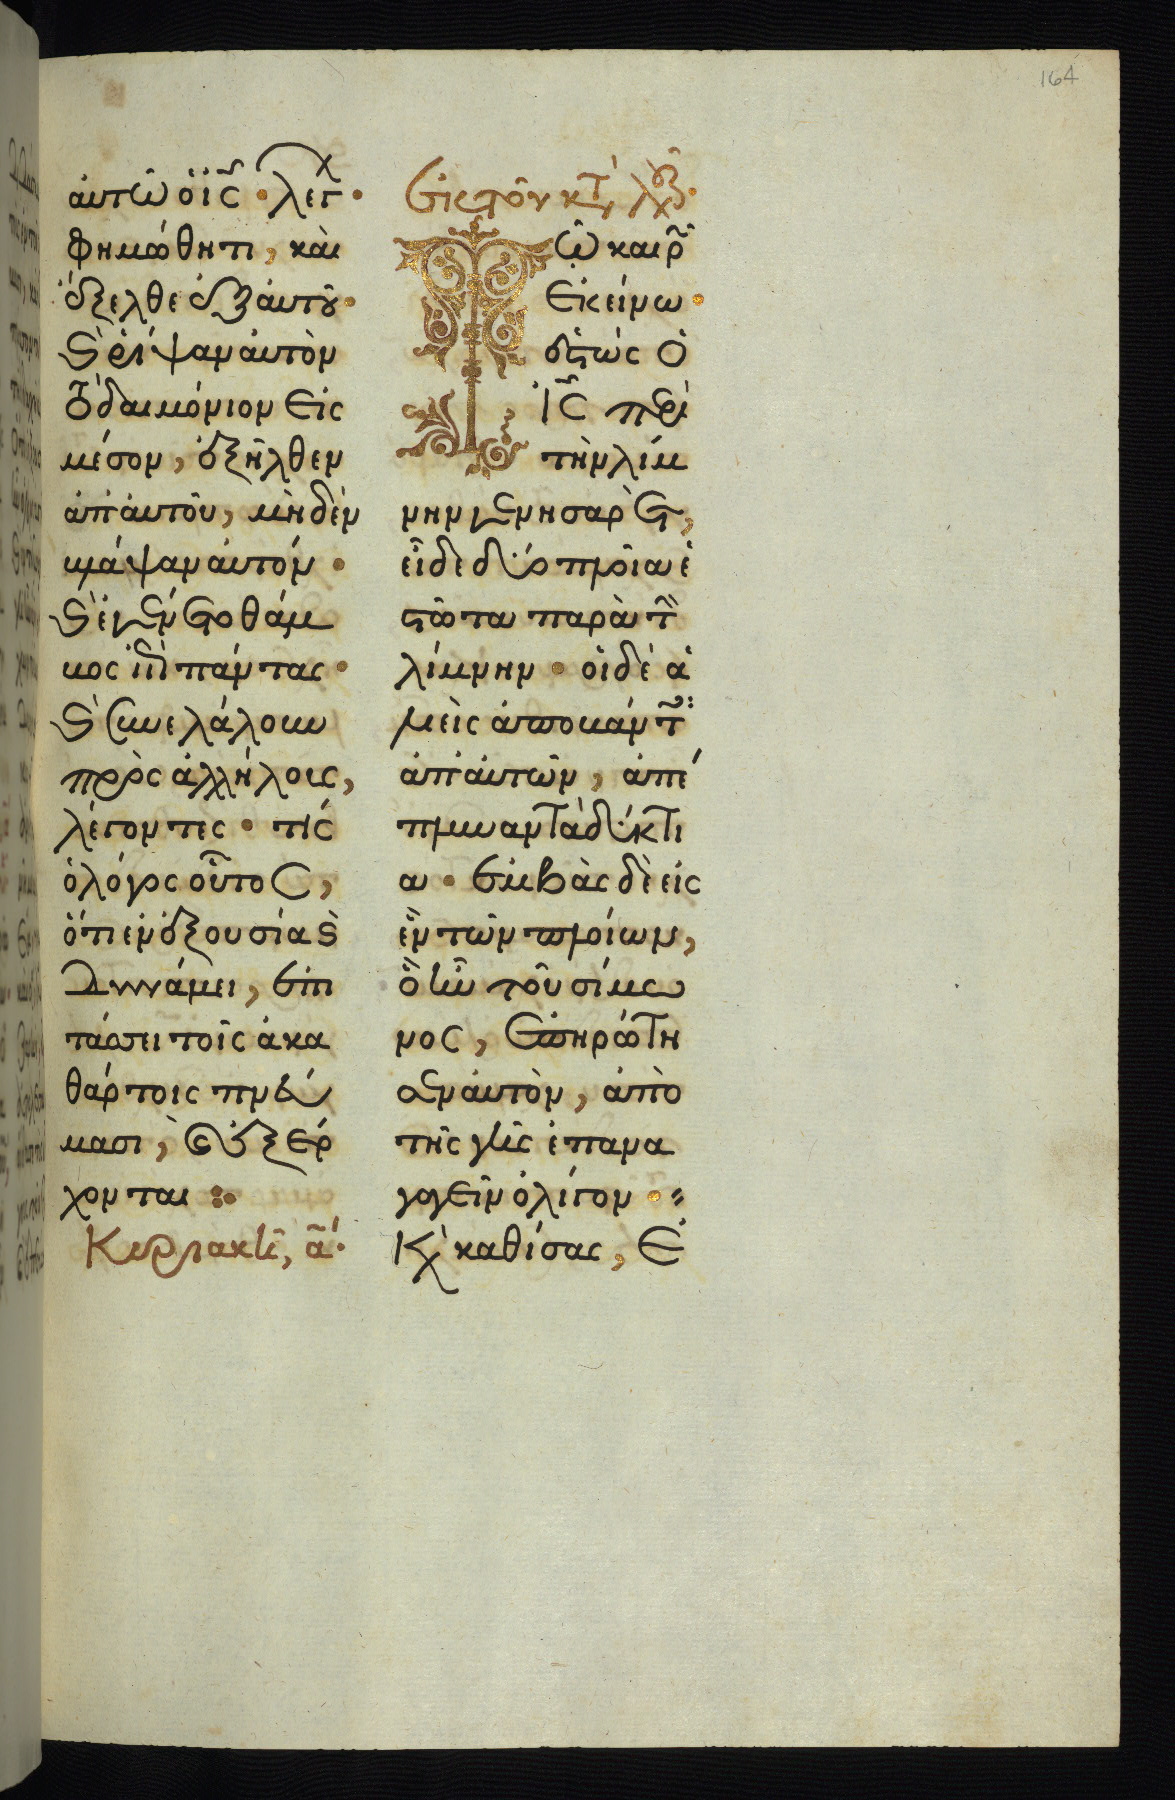 164
αὐτῶ ὁ ἰς̅ · λέγ
φημώθητι, καὶ
ἔξελθε ἐξ αὐτοῦ ·
καὶ ῥίψαν αὐτὸν
τὸ δαιμόνιον εἰς
μέσον, ἐξῆλθεν
ἀπ' αὐτοῦ, μηδὲν
βλάψαν αὐτόν ·
καὶ ἐγένετο θάμ
βος ἐπὶ πάντας ·
καὶ συνελάλουν
πρὸς ἀλλήλους,
λέγοντες · τίς
ὁ λόγος οὗτος,
ὅτι ἐν ἐξουσία καὶ
δυνάμει, ἐπι
τάσσει τοῖς ἀκα
θάρτοις πνεύ
μασι, καὶ ἐξέρ
χονται :·
Κυριακῆ, α ·
Ἐκ τοῦ κατ λουκ ·
Τῶ καιρ
ἐκείνω ·
ἑστὼς ὁ
ἰς̅ παρὰ
τὴν λίμ
νην γεννησαρὲτ,
εἶδε δύο πλοῖα ἑ
στῶτα παρὰ τὴν
λίμνην · οἱ δὲ ἁ
λιεῖς ἀποβάντες
ἀπ' αὐτῶν, ἀπέ
πλυναν τὰ δίκτυ
α · ἐμβὰς δὲ εἰς
ἓν τῶν πλοίων,
ὃ ἦν τοῦ σίμω
νος, ἐπηρώτη
σεν αὐτὸν, ἀπὸ
τῆς γῆς ἐπανα
γαγεῖν ὀλίγον ·
Καὶ καθίσας, ἐ